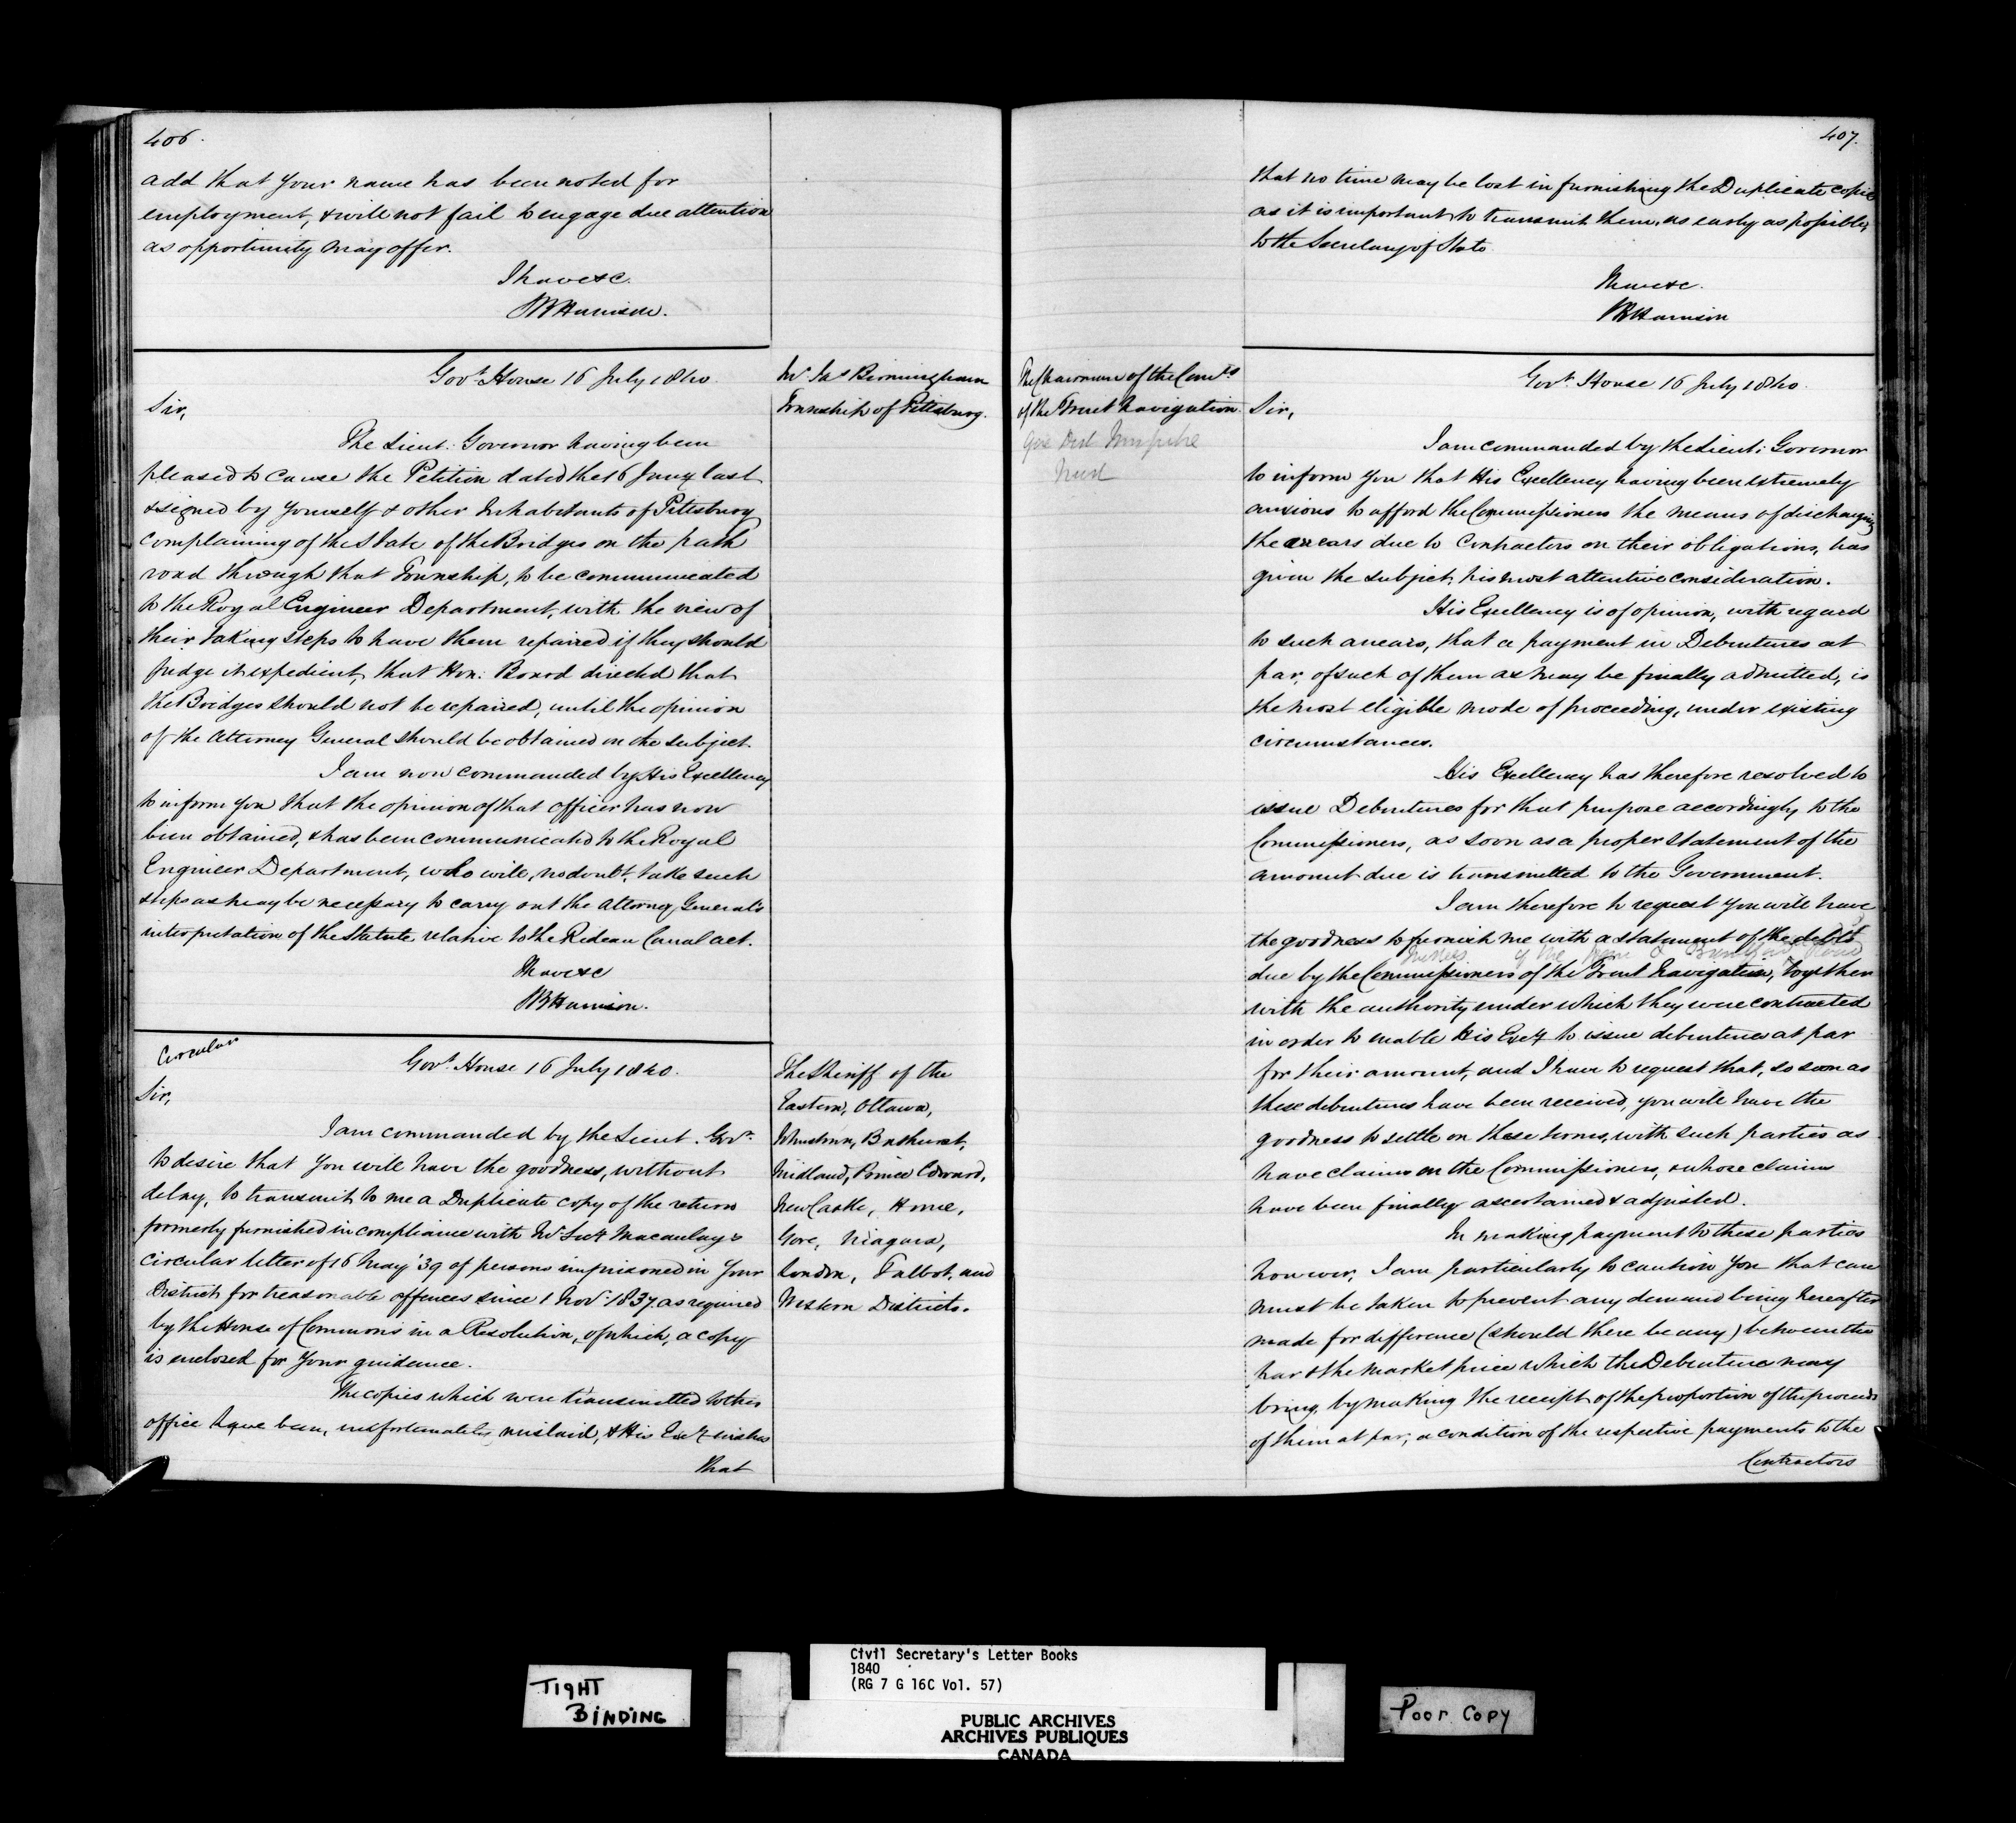 406.
add that your name has been noted for
employment, & will not fail to engage due attention
as opportunity may offer.
I have &c.
SB Harrison.
Govt. House 16 July 1840.
Mr. Jas Birmingham
Township of Pittsburg.
Sir,
The Lieut: Governor having been
pleased to cause the Petition dated the 16 Jany last
& signed by yourself & other Inhabitants of Pittsburg
complaining of the state of the Bridges on the path
road through that Township, to be communicated
to the Royal Engineer Department, with the view of
their taking steps to have them repaired if they should
judge it expedient, that Hon: Board directed that
the Bridges should not be repaired, until the opinion
of the Attorney General should be obtained on the subject.
I am now commanded by His Excellency
to inform you that the opinion of that officer has now
been obtained, & has been communicated to the Royal
Engineer Department, who will, no doubt, take such
steps as may be necessary to carry out the Attorney General's
interpretation of the Statute relative to the Rideau Canal act.
I have &c
SB Harrison.
Circular
Govt. House 16 July 1840.
The Sheriff of the
Eastern, Ottawa,
Johnstown, Bathurst,
Midland, Prince Edward,
New Castle, Home,
Gore, Niagara,
London, Talbot, and
Western Districts.
Sir,
I am commanded by the Lieut. Govr.
to desire that you will have the goodness, without
delay, to transmit to me a Duplicate copy of the return
formerly furnished in compliance with Mr Secy Macaulay's
circular letter of 16 May '39 of persons imprisoned in your
District for treasonable offences since 1 Novr. 1837, as required
by the House of Commons in a Resolution, of which, a copy
is enclosed for your guidance.
The copies which were transmitted to this
office have been, unfortunately, mislaid, & His Excy wishes
that
407.
that no time may be lost in furnishing the Duplicate copies
as it is important to transmit them, as early as possible,
to the Secretary of State.
I have &c.
SB Harrison
The Chairman of the Comrs
of the Trent Navigation.
Gore Dist Turnpike
Trust
Govt. House 16 July 1840.
Sir,
I am commanded by the Lieut: Governor
to inform you that His Excellency having been extremely
anxious to afford the Commissioners the means of discharging
the arrears due to Contractors on their obligations, has
given the subject his most attentive consideration.
His Excellency is of opinion, with regard
to such arrears, that a payment in Debentures at
par, of such of them as may be finally admitted, is
the most eligible mode of proceeding, under existing
circumstances.
His Excellency has therefore resolved to
issue Debentures for that purpose accordingly, to the
Commissioners, as soon as a proper statement of the
amount due is transmitted to the Government.
I am therefore to request you will have
the goodness to furnish me with a statement of the debts
due by the Commissioners of the Trent Navigation, together
with the authority under which they were contracted
in order to enable His Excy to issue debentures at par
for their amount, and I have to request that, so soon as
these debentures have been received, you will have the
goodness to settle on these terms, with such parties as
have claims on the Commissioners, & whose claims
have been finally ascertained & adjusted.
In making payment to these parties
however, I am particularly to caution you that care
must be taken to prevent any demand being hereafter
made for difference (should there be any) between the
par & the market price which the Debenture may
bring, by making the receipt of the proportion of the proceeds
of them at par, a condition of the respective payments to the
Contractors
TIGHT
BINDING
Civil Secretary's Letter Books
1840
(RG 7 G 16C Vol. 57)
PUBLIC ARCHIVES
ARCHIVES PUBLIQUES
CANADA
Poor Copy